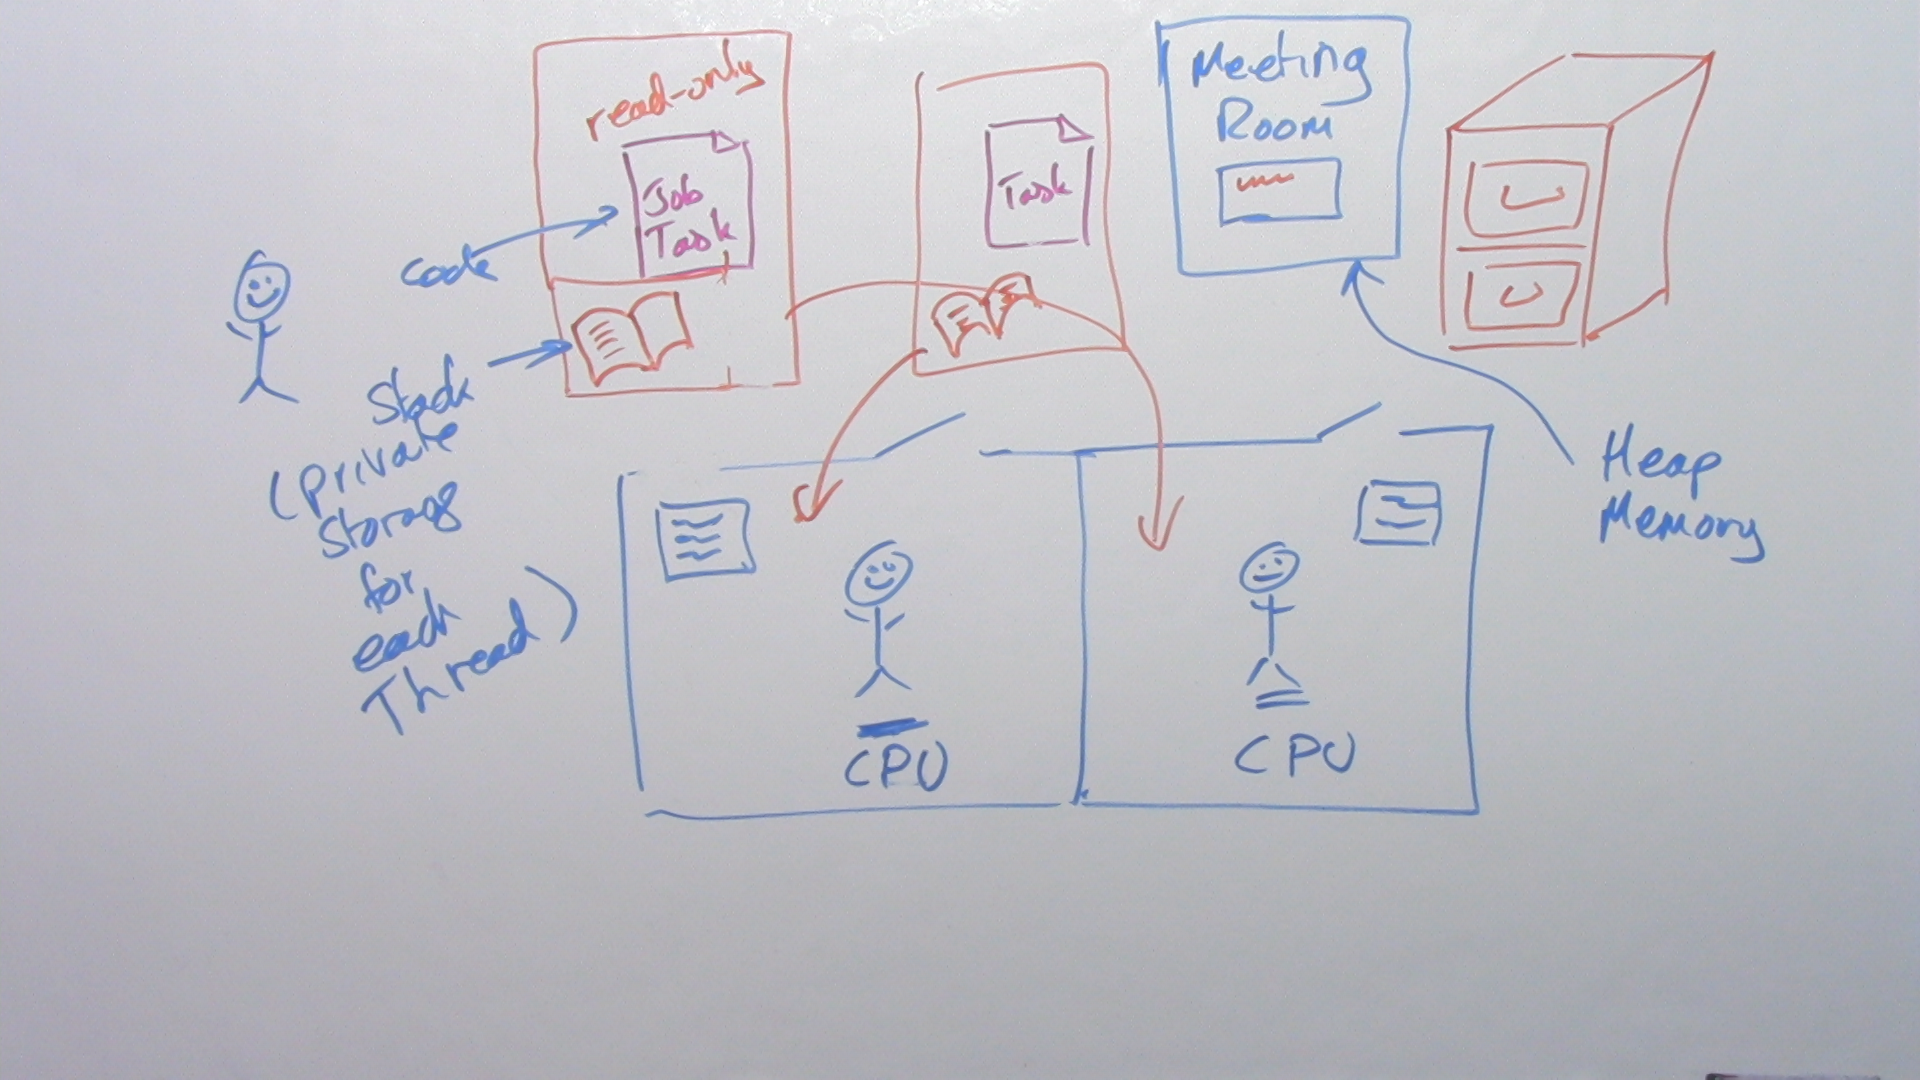 read-only
Job
Task
Task
Meeting
Room
code
Stack
(private
storage
for
each
Thread)
Heap
Memory
CPU
CPU